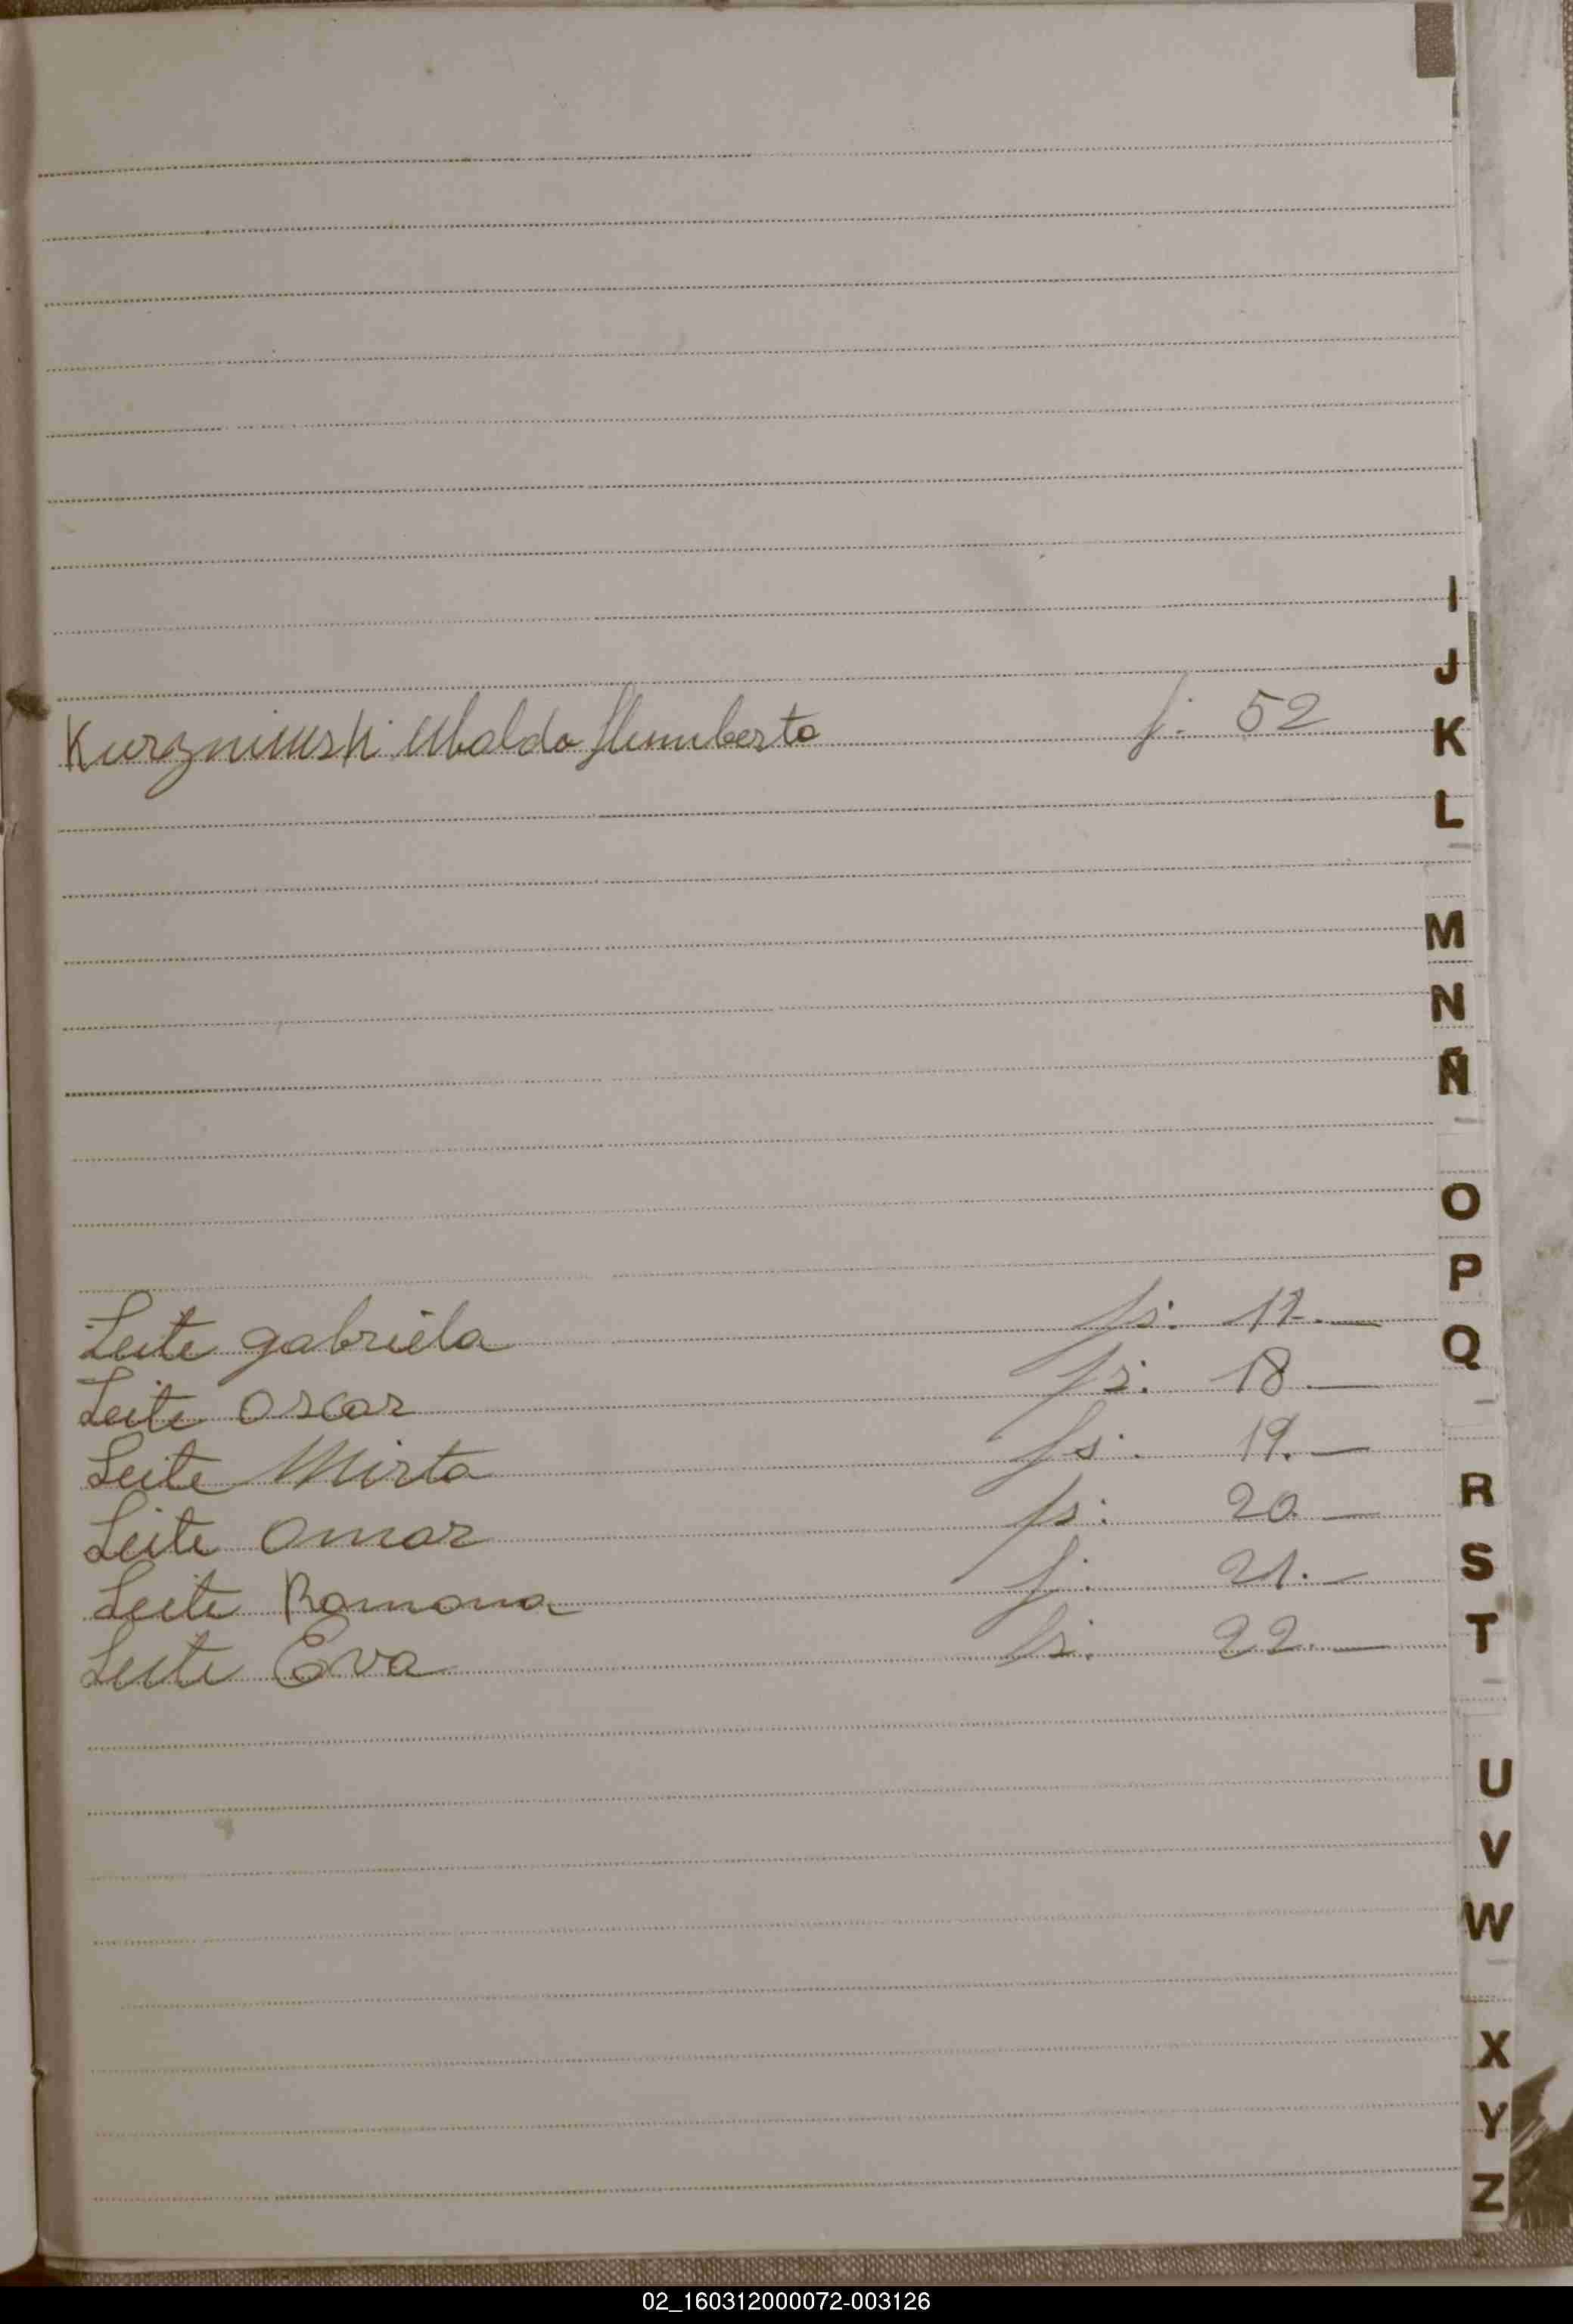 I
J
Kurzniuski Ubaldo Humberto f. 52
K
L
M
N
Ñ
O
P
Leite Gabriela fs: 17.—
Q
Leite Oscar fs: 18.—
Leite Mirta fs: 19.—
R
Leite Omar fs: 20.—
S
Leite Ramona f. 21.—
T
Leite Eva fs. 22.—
U
V
W
X
Y
Z
02_160312000072-003126